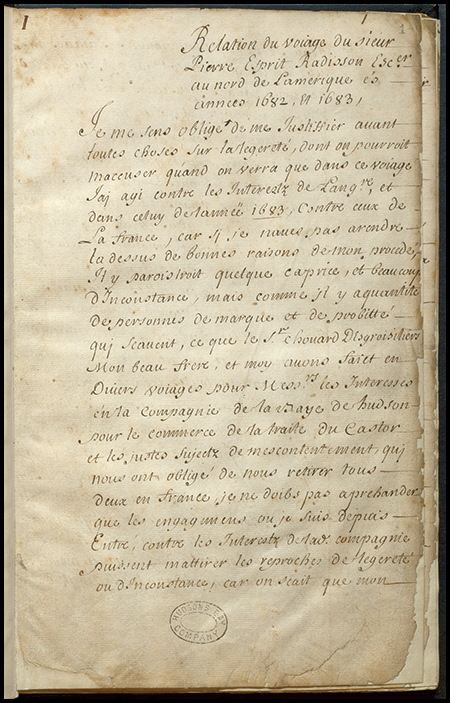 1 1
Relation du voiage du sieur
Pierre Esprit Radisson Esc.er
au nord de Lamerique és
années 1682, et 1683,
Je me sens obligé de me Justiffier avant
toutes choses sur la legereté, dont on pourroit
maccuser quand on verra que dans ce voiage
Jaj agi contre les Interestz de Lang.re, et
dans celuy de lanneë 1683, Contre ceux de
La france, car sj je naves pas arendre
la dessus de bonnes raisons de mon procedé,
Jl y paroistroit quelque caprice, et beaucoup
dInconstance, mais comme jl y a quantité
de personnes de marque et de probitté
qui scauent, ce que le S.r chouard Dsgroisiliers
Mon beau frere, et moy avons faict en
Divers voiages pour Mess.rs les Interessés
en la Compagnie de la Baye de hudson
pour le commerce de la traite du Castor
et les justes sujectz de mescontentement, quj
nous ont obligé de nous retirer tous
deux en france, je ne doibs pas aprehander
que les engagmens ou je suis depuis
Entré, contre les Interestz de lad.e compagnie
puissent mattirer les reproches de legereté
ou dInconstance, car on scait que mon
HUDSONS BAY
COMPANY